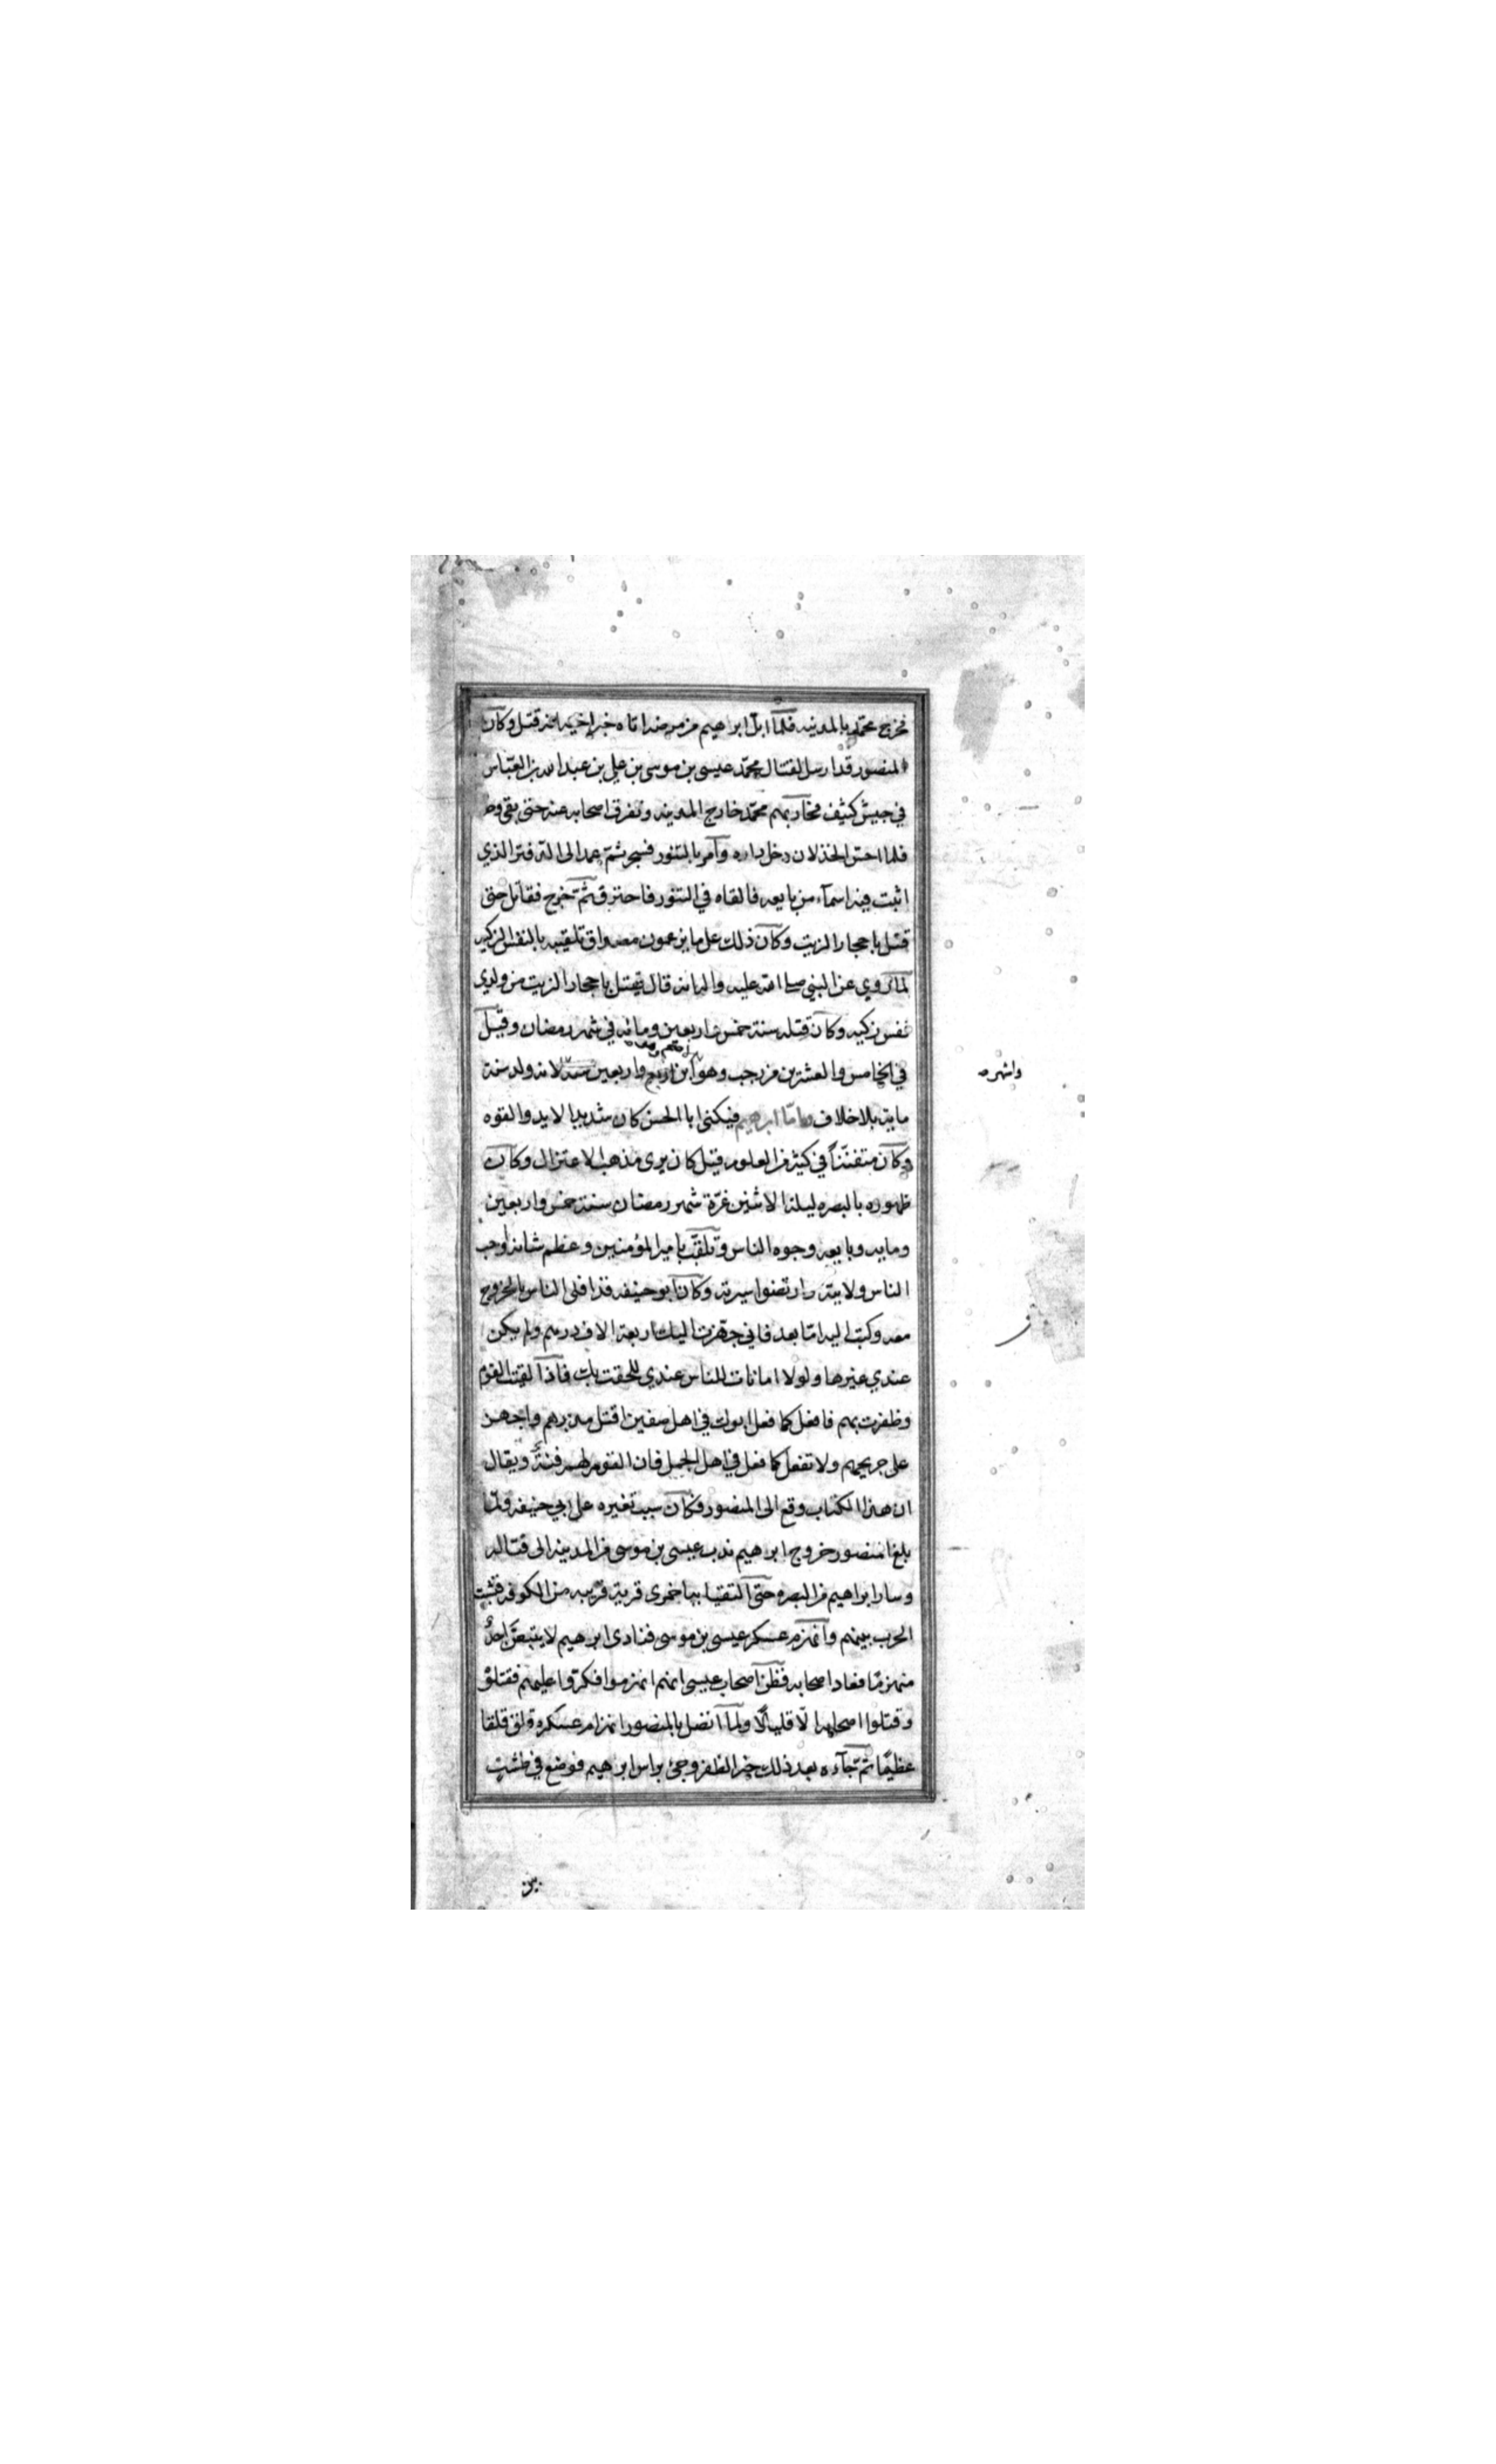 فخرج محمد بالمدينه فلما ابل ابرهيم من مرضه اتاه خبر اخيه انه قتل وكان
المنصور قد ارسل لقتال محمد عيسى بن موسى بن علي بن عبد الله بن العباس
في جيش كثيف فحاربهم محمد خارج المدينه وتفرق اصحابه عنه حتى بقي وحد
فلما احس الخذلان دخل داره وامر بالتنور فسجر ثم عمد الى الدفتر الذي
اثبت فيه اسماء من بايعه فالقاه في التنور فاحترق ثم خرج فقاتل حتى
قتل باحجار الزيت وكان ذلك على ما يزعمون مصداق تلقيبه بالنفس الزكيه
لما روي عن النبي صلى الله عليه واله انه قال يقتل باحجار الزيت من ولدي
نفس زكيه وكان قتله سنة خمس واربعين ومائه في شهر رمضان وقيل
في الخامس والعشرين من رجب وهو ابن اربع واربعين سنة لانه ولد سنة
واشهر
مايه بلا خلاف واما ابرهيم فيكنى ابا الحسن كان شديد الايد والقوه
وكان متفننا في كثير من العلوم وقيل كان يرى مذهب الاعتزال وكان
ظهوره بالبصره ليلة الاثنين غرة شهر رمضان سنة خمس واربعين
ومايه وبايعه وجوه الناس وتلقب بامير المؤمنين وعظم شانه واحب
الناس ولايته وارتضوا سيرته وكان ابو حنيفه قد افتى الناس بالخروج
معه وكتب اليه اما بعد فاني جهزت اليك اربعة الاف درهم ولم يكن
عندي غيرها ولولا امانات للناس عندي للحقت بك فاذا لقيت القوم
وظفرت بهم فافعل كما فعل ابوك في اهل صفين اقتل مدبرهم واجهز
على جريحهم ولا تفعل كما فعل في اهل الجمل فان القوم لهم فئة ويقال
ان هذا الكتاب وقع الى المنصور فكان سبب تغيره على ابي حنيفه ولما
بلغ المنصور خروج ابرهيم ندب عيسى بن موسى من المدينه الى قتاله
وسار ابراهيم من البصره حتى التقيا بباخمرى قرية قريبه من الكوفه فنشبت
الحرب بينهم وانهزم عسكر عيسى بن موسى فنادى ابرهيم لا يتبعن احد
منهزما فعاد اصحابه فظن اصحاب عيسى انهم انهزموا فكروا عليهم فقتلوه
وقتلوا اصحابه الا قليلا ولما اتصل بالمنصور انهزام عسكره قلق قلقا
عظيما ثم جاءه بعد ذلك خبر الظفر وجئ براس ابرهيم فوضع في طشت
بين